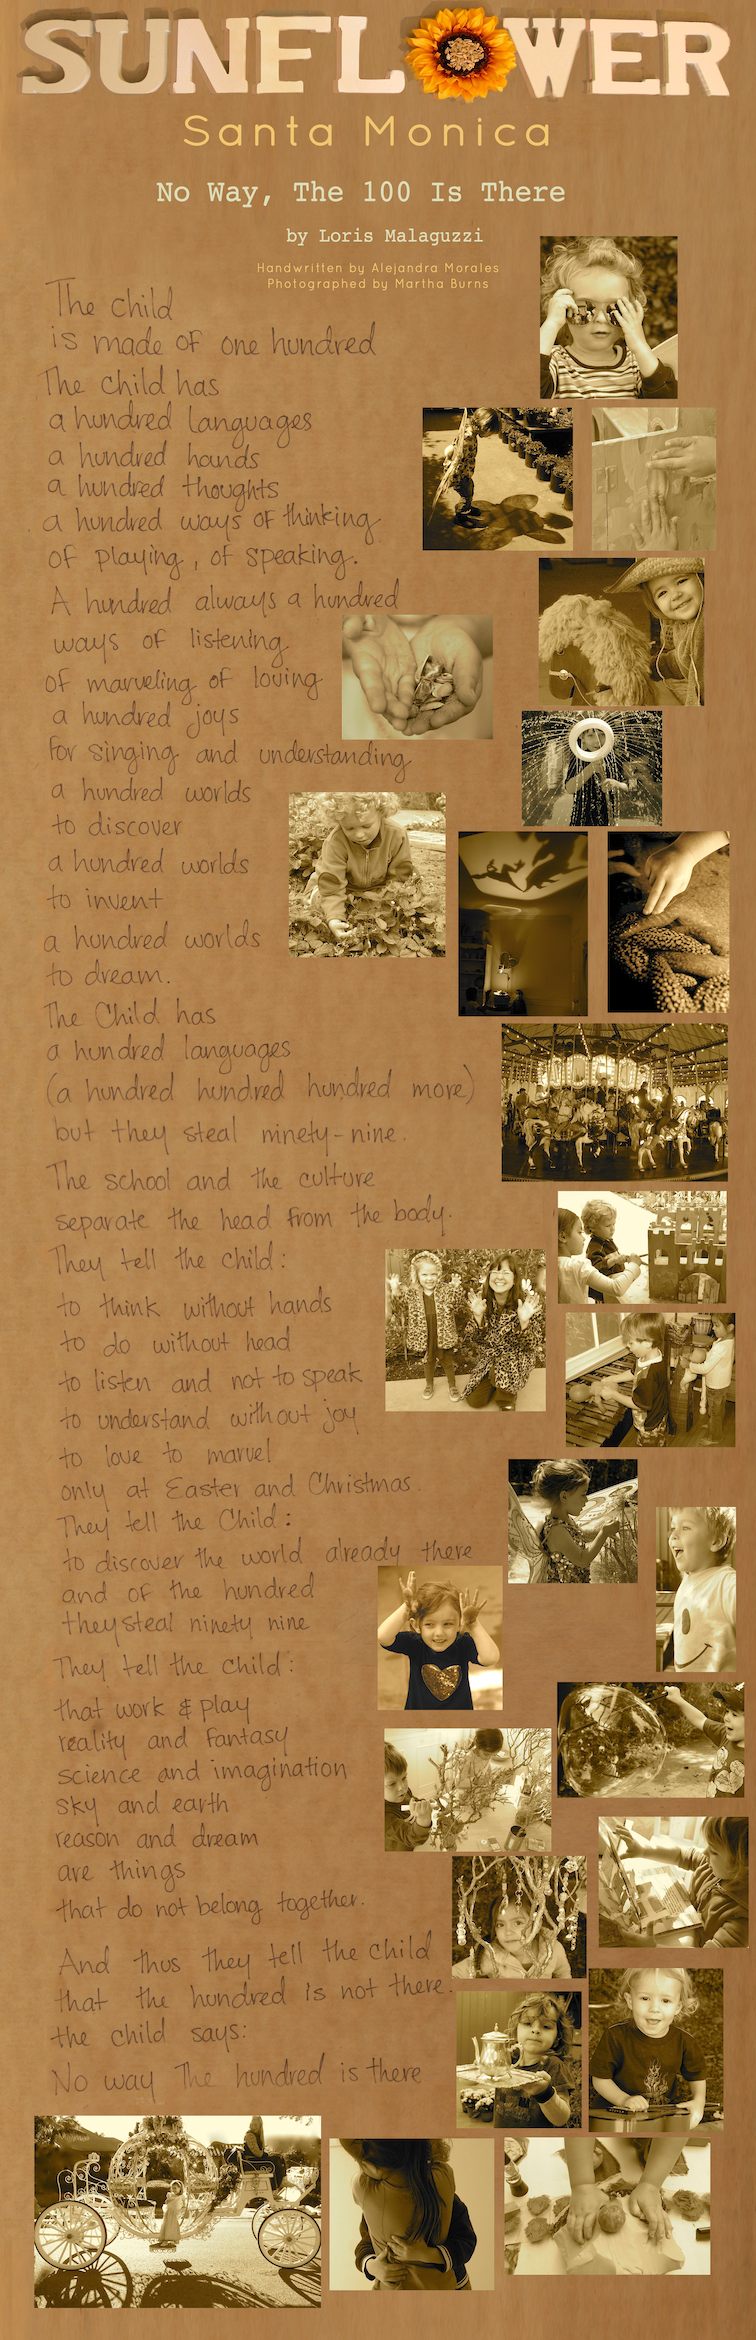 SUNFLOWER
Santa Monica
No Way, The 100 Is There
by Loris Malaguzzi
Handwritten by Alejandra Morales
Photographed by Martha Burns
The child
is made of one hundred
The child has
a hundred languages
a hundred hands
a hundred thoughts
a hundred ways of thinking
of playing, of speaking.
A hundred always a hundred
ways of listening
of marveling of loving
a hundred joys
for singing and understanding
a hundred worlds
to discover
a hundred worlds
to invent
a hundred worlds
to dream.
The Child has
a hundred languages
(a hundred hundred hundred more)
but they steal ninety-nine.
The school and the culture
separate the head from the body.
They tell the child:
to think without hands
to do without head
to listen and not to speak
to understand without joy
to love to marvel
only at Easter and Christmas.
They tell the Child:
to discover the world already there
and of the hundred
they steal ninety nine
They tell the child:
that work & play
reality and fantasy
science and imagination
sky and earth
reason and dream
are things
that do not belong together.
And thus they tell the child
that the hundred is not there.
the child says:
No way The hundred is there